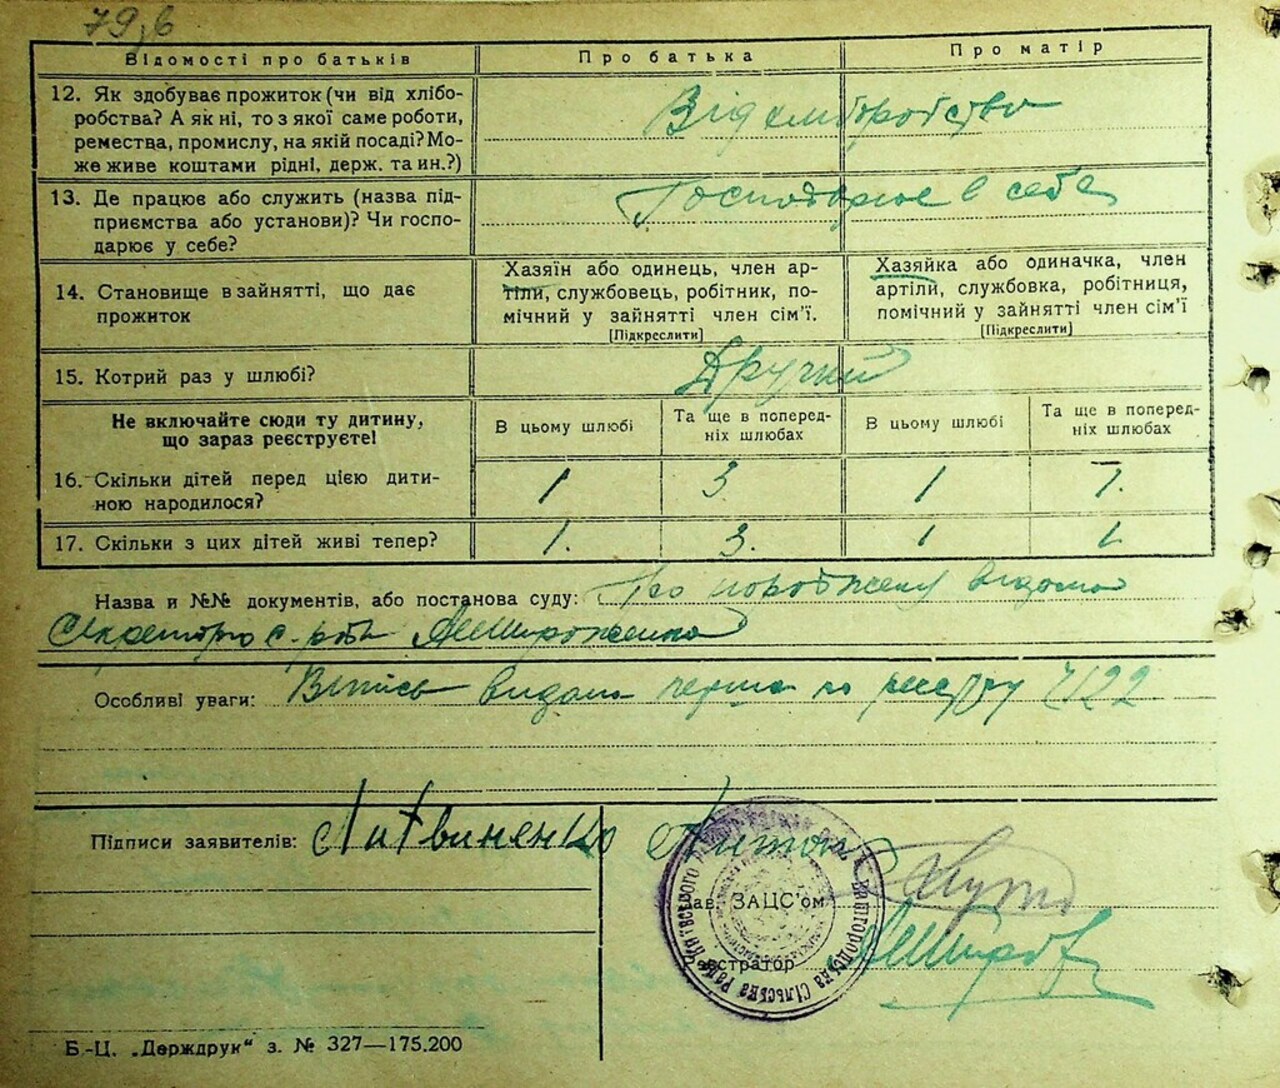 79,б
Відомості про батьків
Про батька
Про матір
12. Як здобуває прожиток (чи від хлібо-
робства? А як ні, то з якої саме роботи,
ремества, промислу, на якій посаді? Мо-
же живе коштами рідні, держ. та ин.?)
Від хліборобства
13. Де працює або служить (назва під-
приємства або установи)? Чи госпо-
дарює у себе?
Господарює в себе
14. Становище в зайнятті, що дає
прожиток
Хазяїн або одинець, член ар-
тіли, службовець, робітник, по-
мічний у зайнятті член сім'ї.
[Підкреслити]
Хазяйка або одиначка, член
артіли, службовка, робітниця,
помічний у зайнятті член сім'ї
[Підкреслити]
15. Котрий раз у шлюбі?
Другий
Не включайте сюди ту дитину,
що зараз реєструєте!
В цьому шлюбі
Та ще в поперед-
ніх шлюбах
В цьому шлюбі
Та ще в поперед-
ніх шлюбах
16. Скільки дітей перед цією дити-
ною народилося?
1 3 1 1.
17. Скільки з цих дітей живі тепер?
1. 3. 1 1
Назва и №№ документів, або постанова суду: Про відомо
Секретарю с.
Особливі уваги: Витись видана перша по реестру 4122
Підписи заявителів: Литвиненко Антон
Зав. ЗАЦС'ом
Реєстратор
Вишгородська Сільська Рада Київського
Б.-Ц. „Держдрук“ з. № 327—175.200